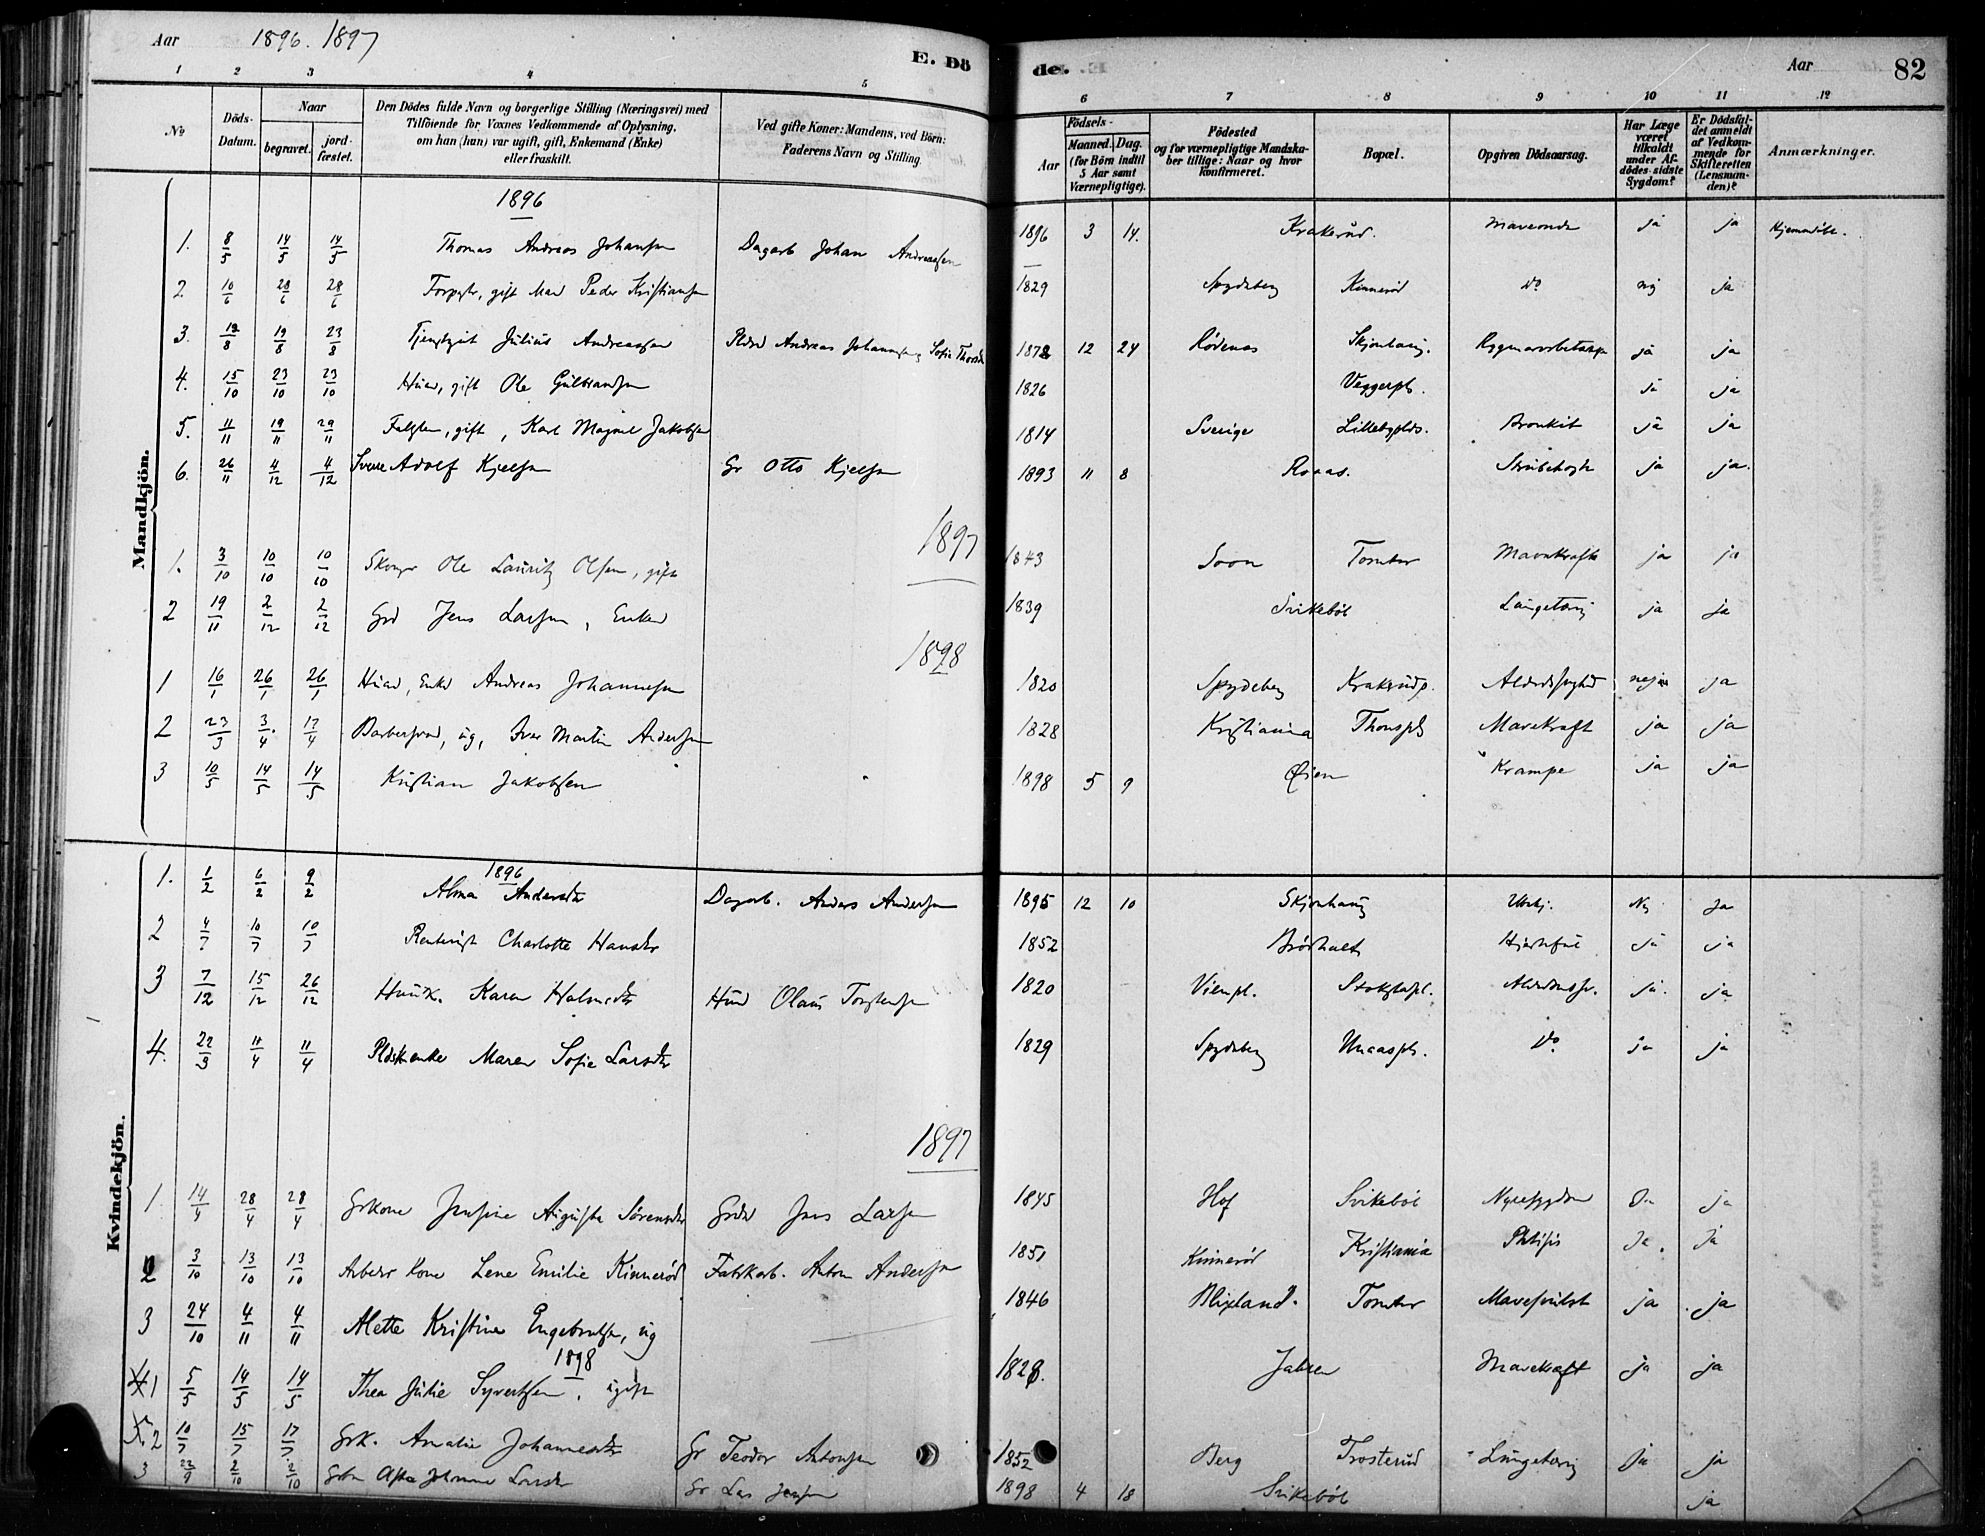 Aar 1896. 1897 E. Dö de. Aar 82
1 2 3 4 5 6 7 8 9 10 11 12
No Döds-Datum. Naar begravet. jordfæstet. Den Dödes fulde Navn og borgerlige Stilling (Næringsvei) med Tilföiende for Voxnes Vedkommende af Oplysning, om han (hun) var ugift, gift, Enkemand (Enke) eller fraskilt. Ved gifte Koner: Mandens, ved Börn: Faderens Navn og Stilling. Födsels- Aar Maaned. Dag. (for Börn indtil 5 Aar samt Værnepligtige). Födested og for værnepligtige Mandskaber tillige: Naar og hvor konfirmeret. Bopæl. Opgiven Dödsaarsag. Har Læge været tilkaldt under Afdödes sidste Sygdom? Er Dödsfaldet anmeldt af Vedkommende for Skifteretten (Lensmanden)? Anmærkninger.
Mandkjön.
1896
1. 8/5 14/5 14/5 Thomas Andreas Johansen Dagarb Johan Andreassen 1896 3 14. Krakerud. Maveonde ja ja Hjemmedöbt.
2. 10/6 28/6 28/6 gift Mand Peder Kristiansen 1829 Spydeberg Kinneröd do nej ja
3. 12/8 19/8 23/8 Tjenstgut Julius Andreassen Pldsd Andreas Johannesen, Sofie 1872 12 24 Rödenes Skjönhaug. ja ja
4. 15/10 23/10 23/10 Husm, gift Ole Gulbrandsen 1826 Veggerpl. ja ja
5. 11/11 19/11 29/11 gift, Karl Magnil Jakobsen 1814 Sverige Lillebyplds. Bronkit ja ja
6. 26/11 4/12 4/12 Sverre Adolf Kjelsen Gr Otto Kjelsen 1893 11 8 Roaas. Strubehoste ja ja.
1897
1. 3/10 10/10 10/10 Ole Lauritz Olsen, gift 1843 Soon Tomter Mavekraft ja ja
2 19/11 2/12 2/12 Grd Jens Larsen, Enkem 1839 Svikeböl Lungetæring ja ja
1898
1 16/1 26/1 26/1 Husm, Enkem Andreas Johannesen 1820 Spydeberg Krakerudp. Alderdsvaghed nej ja
2 23/3 3/4 17/4 Barbersvend, ug, Iver Martin Andersen 1828 Kristiania Thonspls Mavekraft ja ja
3 10/5 14/5 14/5 Kristian Jakobsen 1898 5 9 Öien Krampe ja ja
Kvindekjön.
1896
1. 1/2 6/2 9/2 Alma Andersdtr Dagarb. Anders Andersen 1895 12 10 Skjönhaug Ubekj. Nej Ja
2 4/7 10/7 10/7 Charlotte Hansdtr 1852 Brörholt Hjertefeil ja ja
3 7/12 15/12 26/12 Husmk. Karen Halvorsdtr Husm Olaus Torstensen 1820 Vienpl. Stokstadpl. ja. ja
4. 22/3 11/4 11/4 Pldsmenke Maren Sofie Larsdtr 1829 Spydeberg Unaaspls. do ja ja
1897
1. 14/4 28/4 28/4 Grkone Josefine Augusta Sörensdtr Grdbr Jens Larsen 1845 Hof Svikeböl Nyresygdom Ja ja
2 3/10 13/10 13/10 Arbeder kone Lene Emilie Kinneröd Fabrkarb. Anton Andersen 1851 Kinneröd Kristiania Phtisis Ja. Ja
3 24/10 4/11 4/11 Alette Kristine Engebretsen, ug 1846 Blixland. Tomter Mavesvulst ja ja
1898
1 5/5 14/5 14/5 Thea Julie Syvertsen, ugift 1828. Jahren Mavekræft ja ja
2 10/7 15/7 17/7 Grk. Amalie Johannesdtr Gr Teodor Antonsen 1852 Berg Trosterud Lungetæring Ja ja
3 22/9 2/10 2/10 Asta Johanne Larsdtr Gr Lars Jensen 1898 4 18 Svikeböl ja